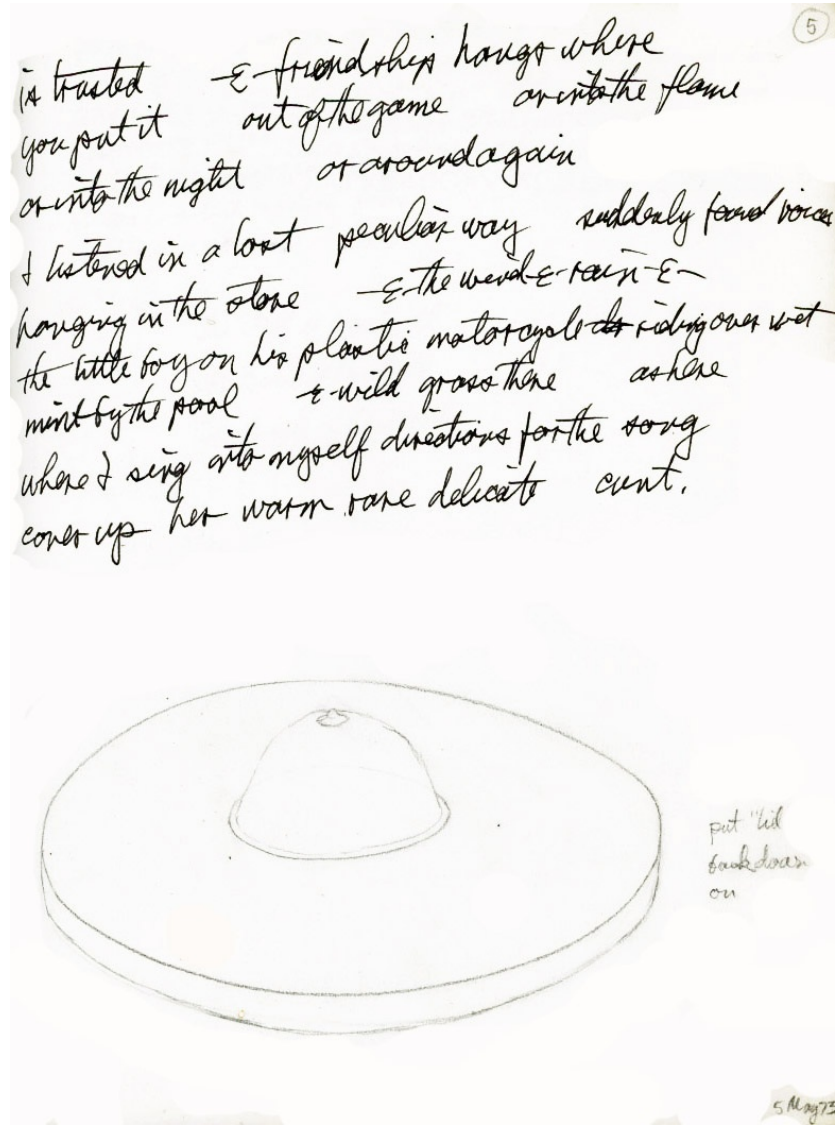 5
is trusted -&- friendship hangs where
you put it out of the game or into the flame
or into the night or around again
I listened in a lost peculiar way suddenly found voices
hanging in the stone -&- the wind -&- rain -&-
the little boy on his plastic motorcycle riding over wet
mint by the pool -&- wild grass there as here
where I sing into myself directions for the song
cover up her warm rare delicate cunt.
put "lid
back down
on
5 May 73